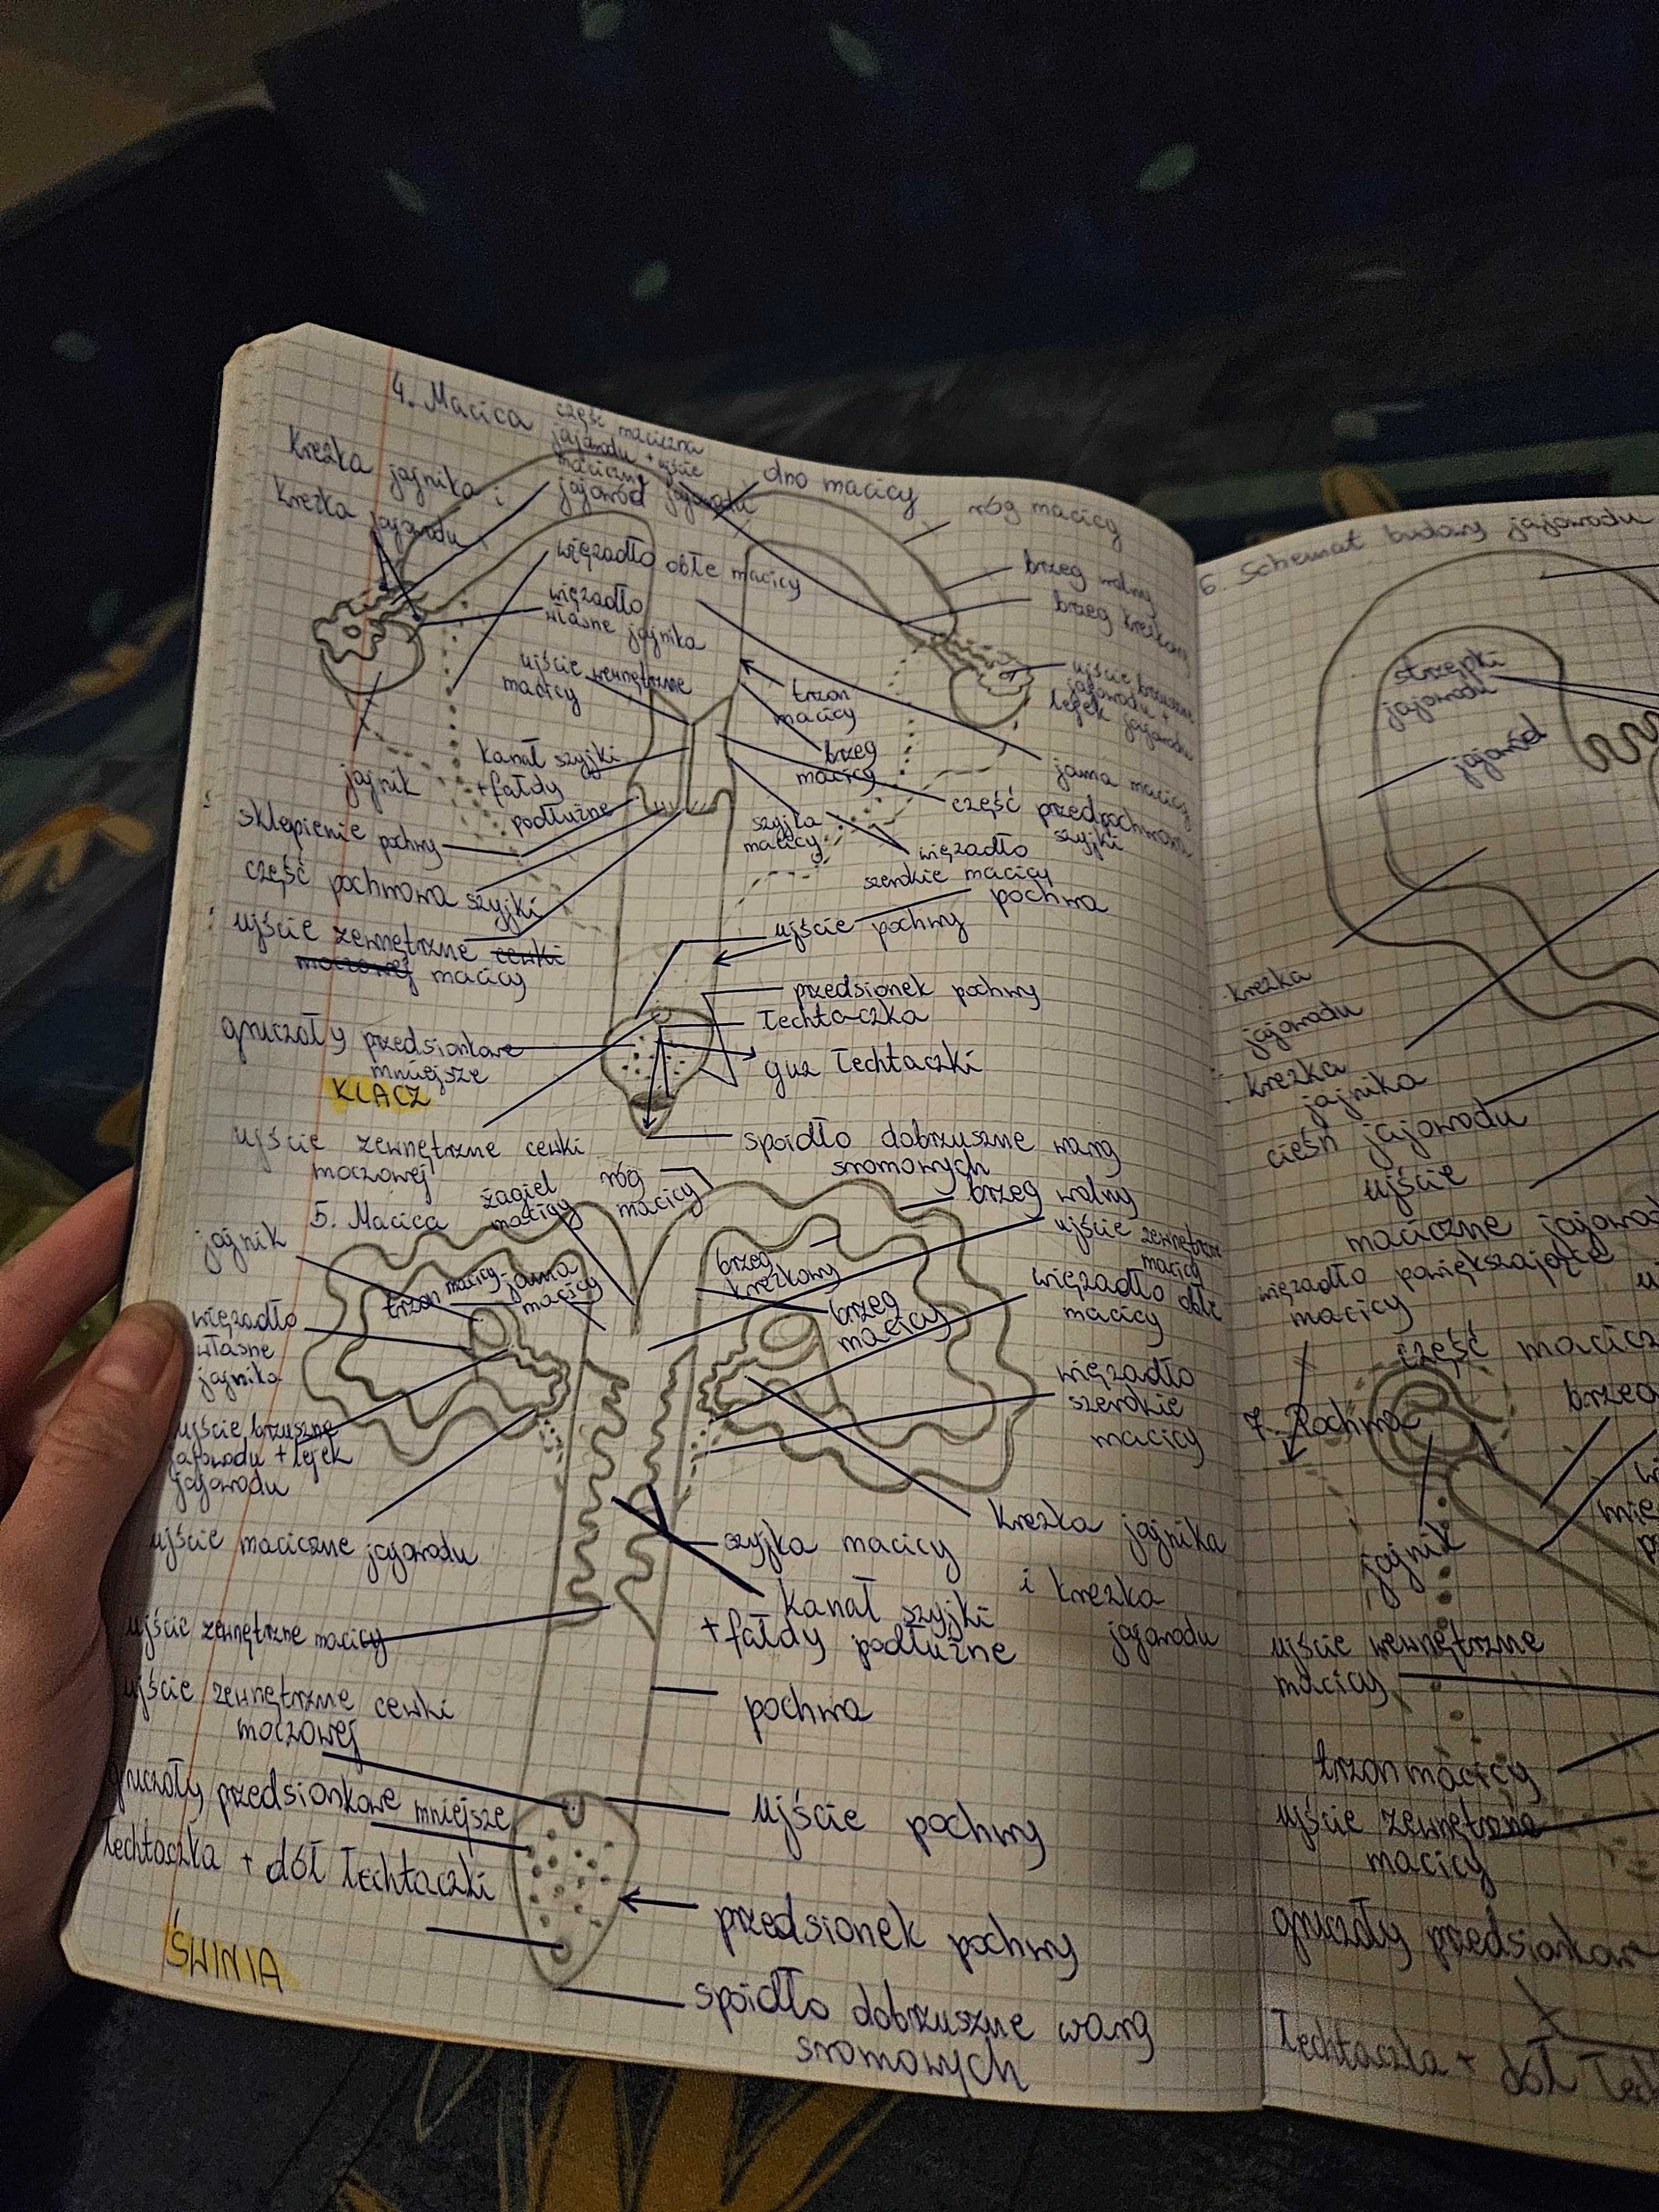 4. Macica
część maciczna
jajowodu + ujście
maciczne
jajowód jajowodu
Krezka jajnika i
Krezka jajowodu
dno macicy
róg macicy
więzadło obłe macicy
brzeg wolny
brzeg krezkowy
więzadło
własne jajnika
ujście wewnętrzne
macicy
trzon
macicy
ujście brzuszne
jajowodu +
lejek jajowodu
brzeg
macicy
jama macicy
jajnik
kanał szyjki
+ fałdy
podłużne
część przedpochwowa
szyjki
szyjka
macicy
sklepienie pochwy
więzadło
szerokie macicy
część pochwowa szyjki
pochwa
ujście zewnętrzne cewki
moczowej macicy
ujście pochwy
przedsionek pochwy
łechtaczka
gruczoły przedsionkowe
mniejsze
guz łechtaczki
KLACZ
ujście zewnętrzne cewki
moczowej
spoidło dobrzuszne warg
sromowych
5. Macica
żagiel
macicy
róg
macicy
brzeg wolny
jajnik
ujście zewnętrzne
macicy
trzon macicy
jama
macicy
brzeg
krezkowy
brzeg
macicy
więzadło obłe
macicy
więzadło
własne
jajnika
więzadło
szerokie
macicy
ujście brzuszne
jajowodu + lejek
jajowodu
ujście maciczne jajowodu
szyjka macicy
Krezka jajnika
i krezka
jajowodu
kanał szyjki
+ fałdy podłużne
ujście zewnętrzne macicy
pochwa
ujście zewnętrzne cewki
moczowej
ujście pochwy
gruczoły przedsionkowe mniejsze
łechtaczka + dół łechtaczki
przedsionek pochwy
ŚWINIA
spoidło dobrzuszne warg
sromowych
6. Schemat budowy jajowodu
strzępki
jajowodu
jajowód
krezka
jajowodu
krezka
jajnika
cieśń jajowodu
ujście
maciczne
więzadło
macicy
część
7. Pochwa
jajnik
ujście wewnętrzne
macicy
trzon macicy
ujście zewnętrzne
macicy
gruczoły
łechtaczka + dół